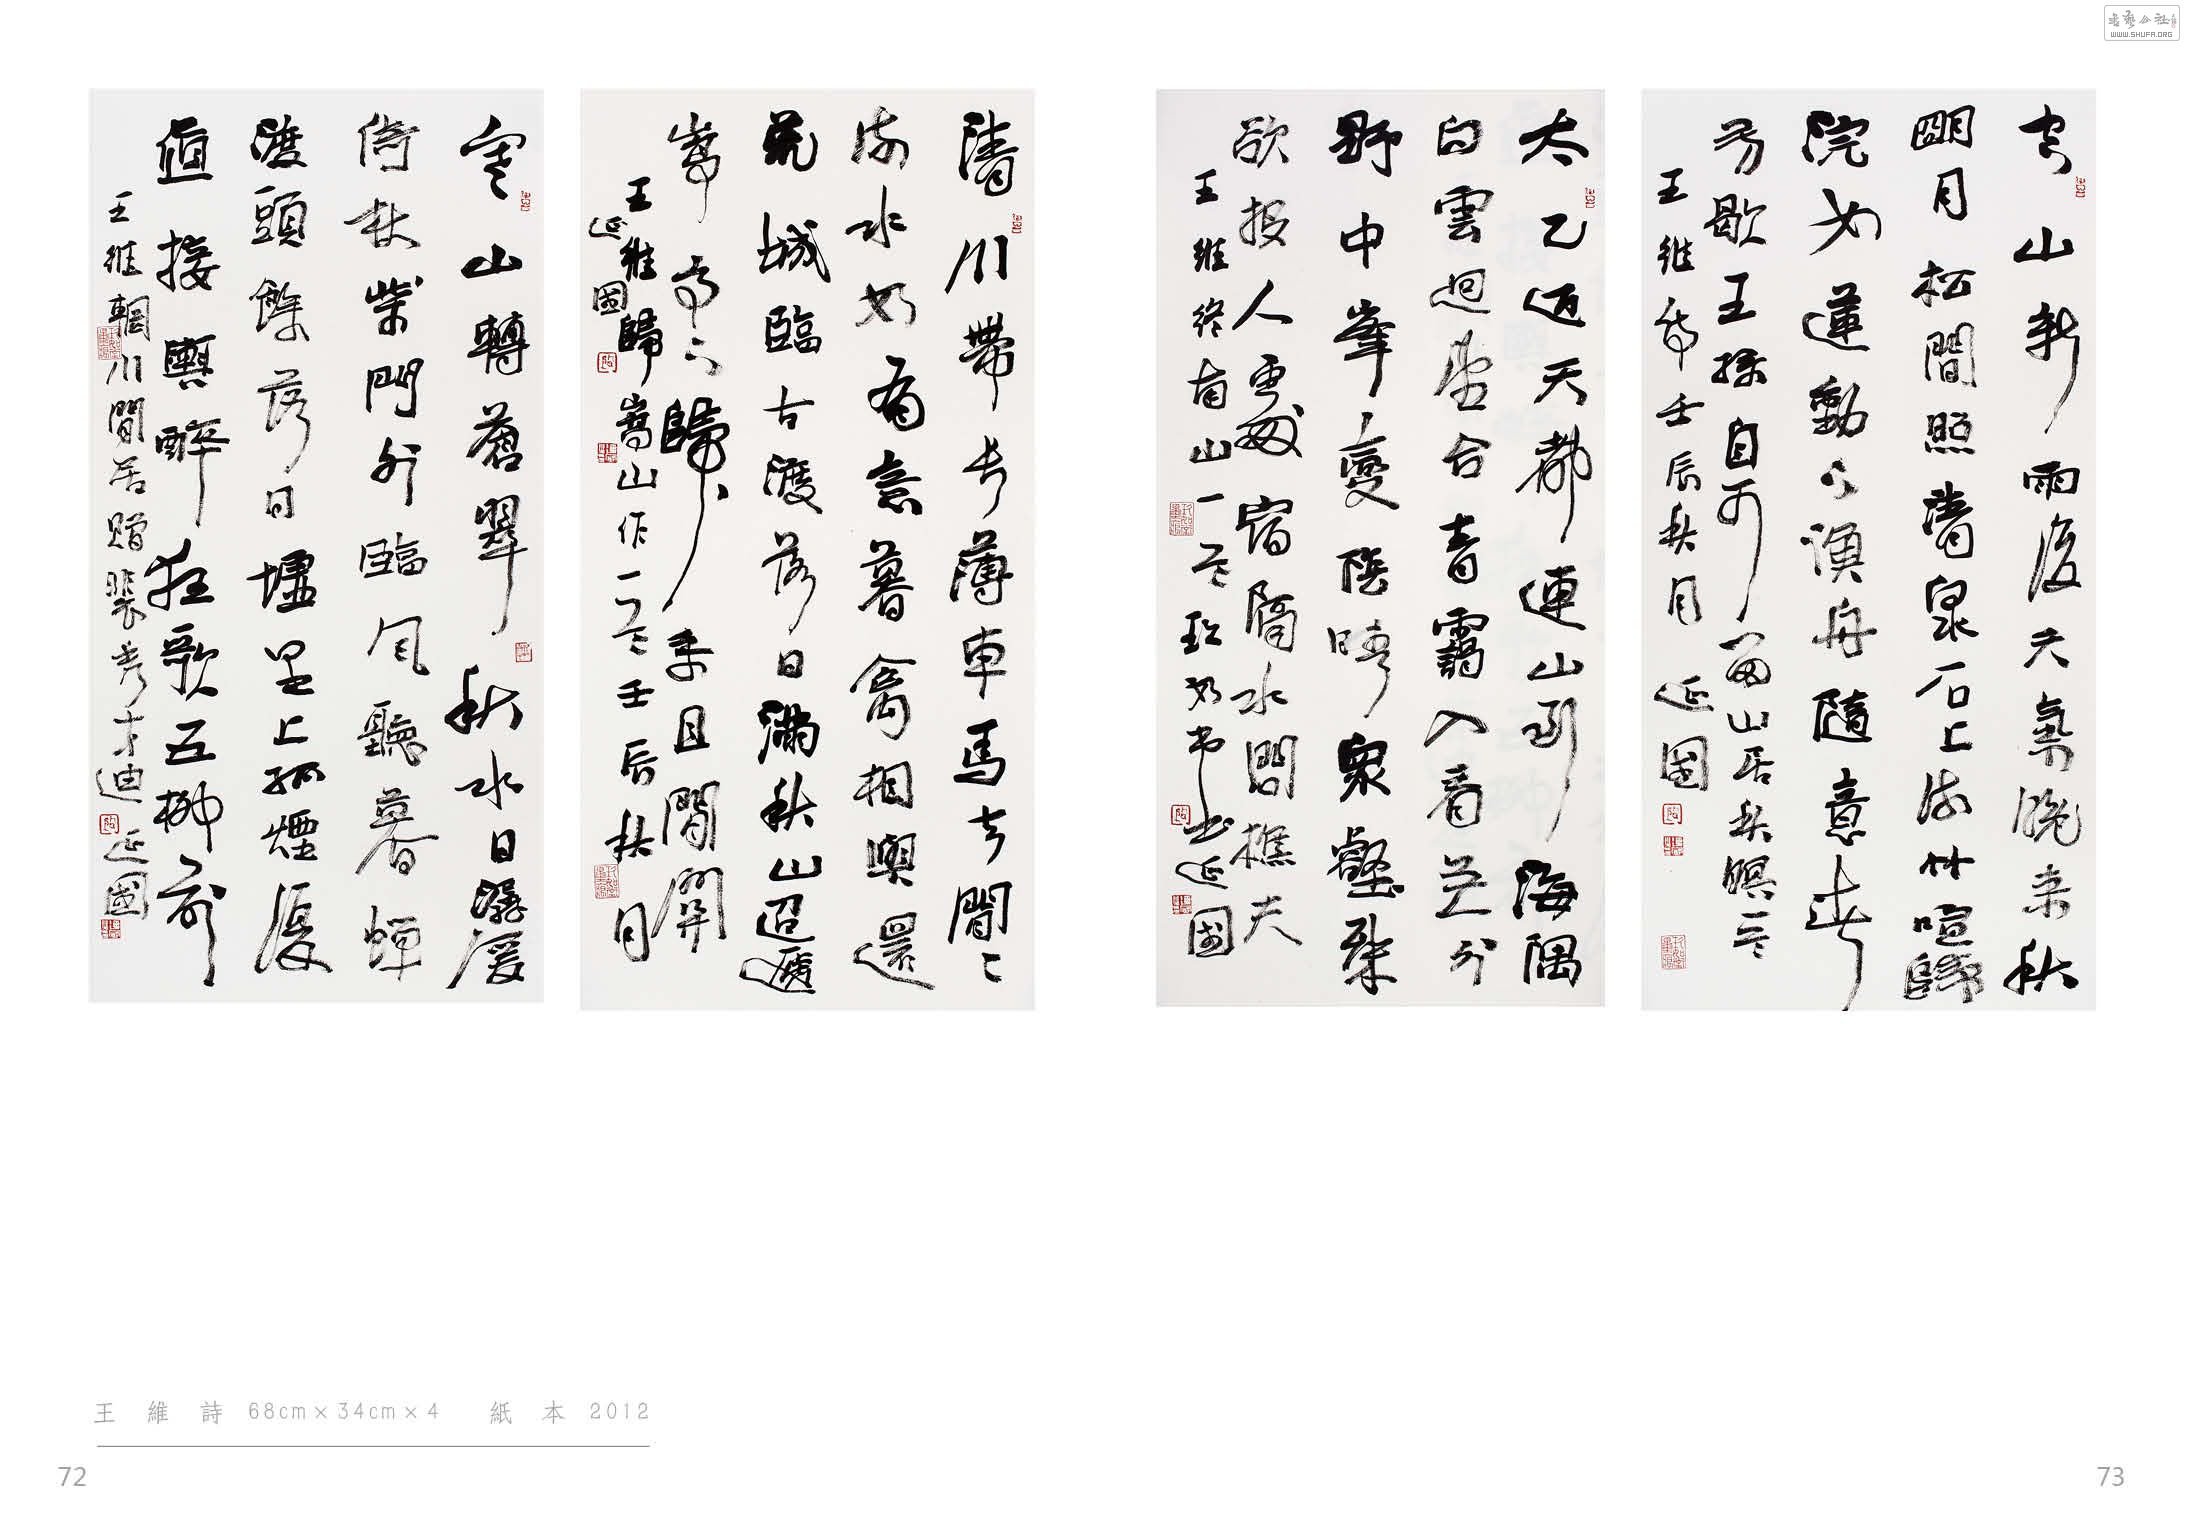 空山新雨後天氣晚來秋
明月松間照清泉石上流竹喧歸
浣女蓮動下漁舟隨意春
芳歇王孫自可留山居秋暝一首
王維 壬辰秋月 延國
太乙近天都連山到海隅
白雲迴望合青靄入看無分
野中峯變陰晴衆壑殊
欲投人處宿隔水問樵夫
王維終南山一首 延國
清川帶長薄車馬去閒〻
流水如有意暮禽相與還
荒城臨古渡落日滿秋山迢遞
嵩高下歸來且閉關
王維歸嵩山作一首壬辰秋月
延國
寒山轉蒼翠秋水日潺湲
倚杖柴門外臨風聽暮蟬
渡頭餘落日墟里上孤煙復
值接輿醉狂歌五柳前
王維輞川閒居贈裴秀才迪 延國
王維詩 68cm×34cm×4 紙本 2012
72
73
書藝公社
WWW.SHUFA.ORG